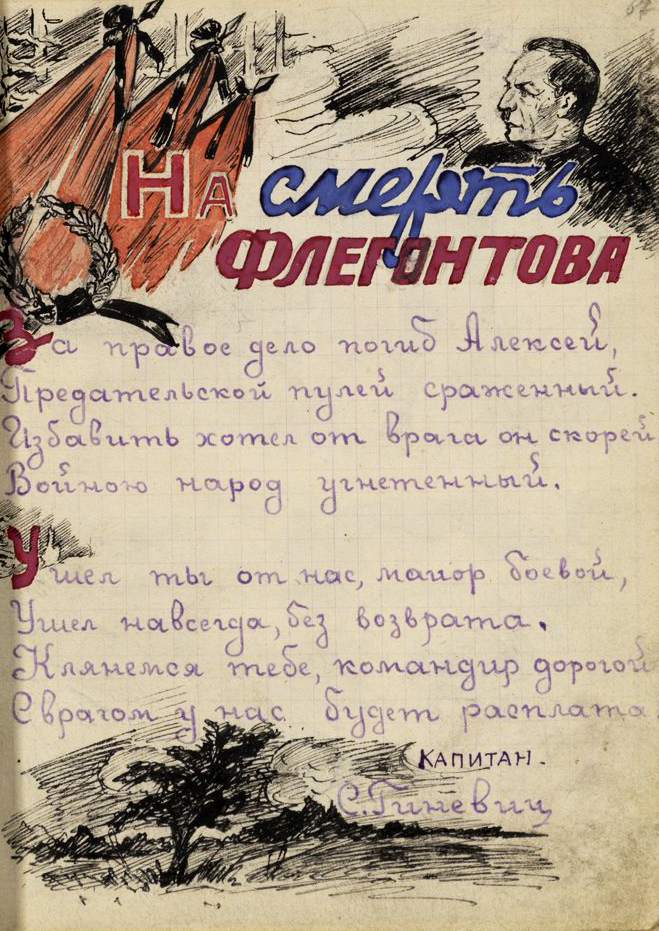 67
На смерть
ФЛЕГОНТОВА
За правое дело погиб Алексей,
Предательской пулей сраженный.
Избавить хотел от врага он скорей
Войною народ угнетенный.
Ушел ты от нас, майор боевой,
Ушел навсегда, без возврата.
Клянемся тебе, командир дорогой
С врагом у нас будет расплата
КАПИТАН.
С. Гиневич